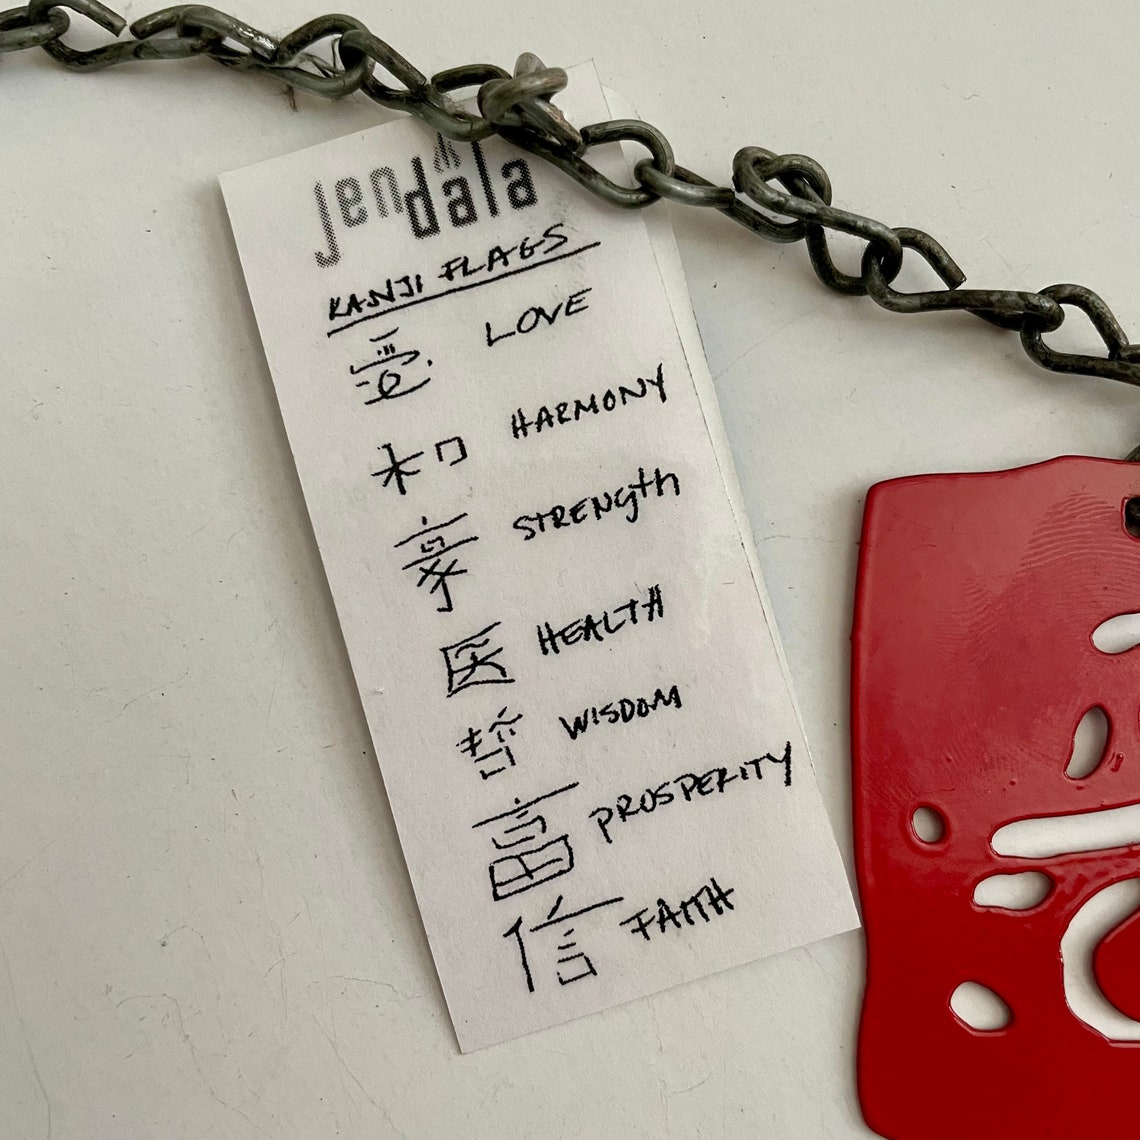 jendala
KANJI FLAGS
愛 LOVE
和 HARMONY
豪 STRENGTH
医 HEALTH
哲 WISDOM
富 PROSPERITY
信 FAITH